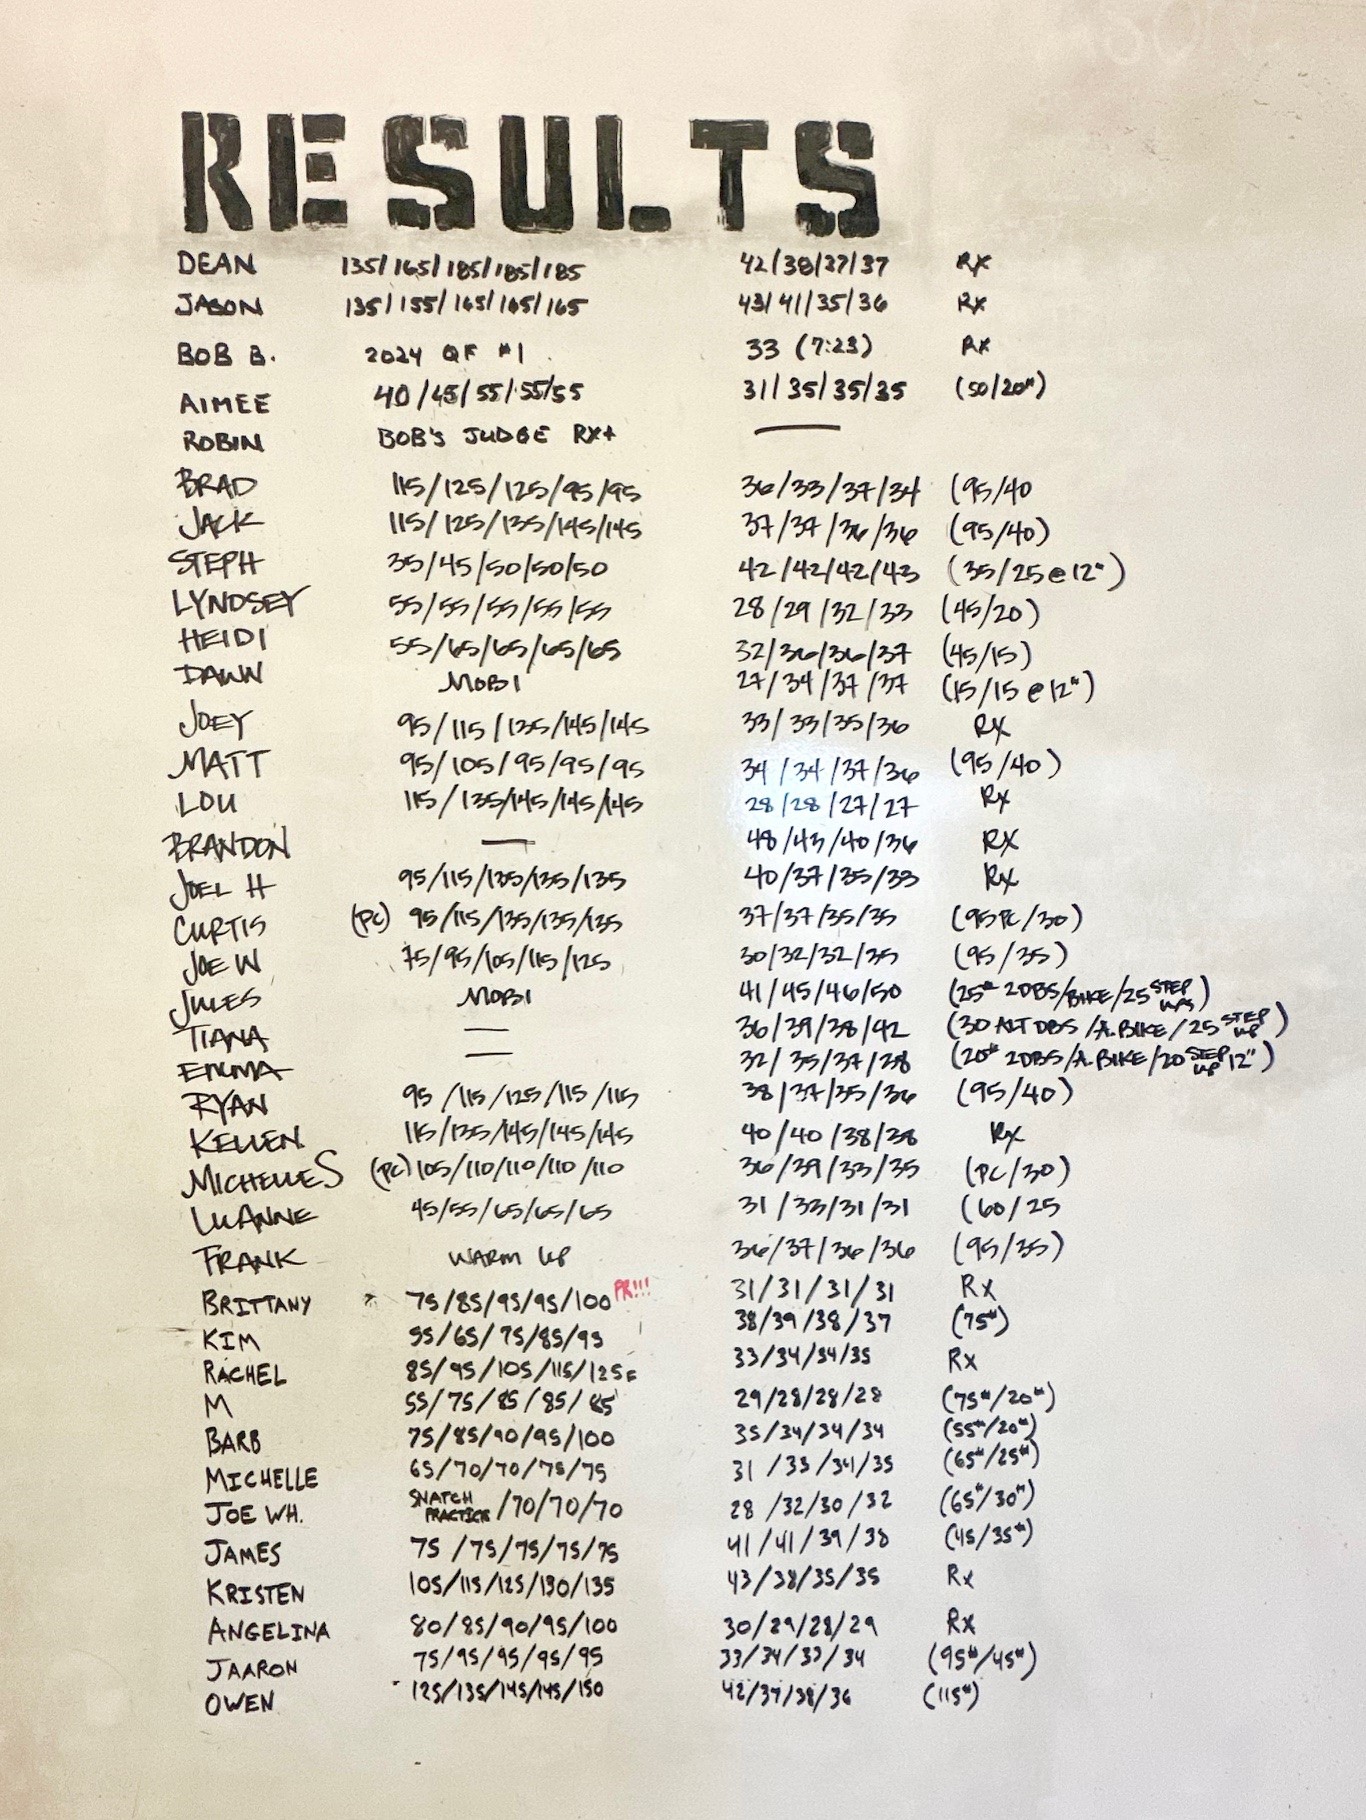 RESULTS
DEAN 135/165/185/185/185 42/38/37/37 RX
JASON 135/155/165/165/165 43/41/35/36 RX
BOB B. 2024 QF #1 33 (7:23) RX
AIMEE 40/45/55/55/55 31/35/35/35 (50/20#)
ROBIN BOB'S JUDGE RX+ —
BRAD 115/125/125/95/95 36/33/37/34 (95/40
JACK 115/125/135/145/145 37/37/36/36 (95/40)
STEPH 35/45/50/50/50 42/42/42/43 (35/25@12")
LYNDSEY 55/55/55/55/55 28/29/32/33 (45/20)
HEIDI 55/65/65/65/65 32/36/36/37 (45/15)
DAWN MOBI 27/34/37/37 (15/15@12")
JOEY 95/115/135/145/145 33/33/35/36 RX
MATT 95/105/95/95/95 34/34/37/36 (95/40)
LOU 115/135/145/145/145 28/28/27/27 RX
BRANDON — 48/43/40/36 RX
JOEL H 95/115/135/135/135 40/37/35/33 RX
CURTIS (PC) 95/115/135/135/135 37/37/35/35 (95PC/30)
JOE W 75/95/105/115/125 30/32/32/35 (95/35)
JULES MOBI 41/45/46/50 (25# 2DBS/BIKE/25 STEP UPS)
TIANA — 36/39/38/42 (30 ALT DBS/A.BIKE/25 STEP UP)
EMMA — 32/35/37/38 (20# 2DBS/A.BIKE/20 STEP UP 12")
RYAN 95/115/125/115/115 38/37/35/36 (95/40)
KELLEN 115/135/145/145/145 40/40/38/38 RX
MICHELLE S (PC) 105/110/110/110/110 36/39/33/35 (PC/30)
LUANNE 45/55/65/65/65 31/33/31/31 (60/25
FRANK WARM UP 36/37/36/36 (95/35)
BRITTANY 75/85/95/95/100 PR!!! 31/31/31/31 RX
KIM 55/65/75/85/95 38/39/38/37 (75#)
RACHEL 85/95/105/115/125F 33/34/34/35 RX
M 55/75/85/85/85 29/28/28/28 (75#/20#)
BARB 75/85/90/95/100 35/34/34/34 (55#/20#)
MICHELLE 65/70/70/75/75 31/33/34/35 (65#/25#)
JOE WH. SNATCH PRACTICE/70/70/70 28/32/30/32 (65#/30#)
JAMES 75/75/75/75/75 41/41/39/38 (45/35#)
KRISTEN 105/115/125/130/135 43/38/35/35 RX
ANGELINA 80/85/90/95/100 30/29/28/29 RX
JAARON 75/95/95/95/95 33/34/33/34 (95#/45#)
OWEN 125/135/145/145/150 42/37/38/36 (115#)